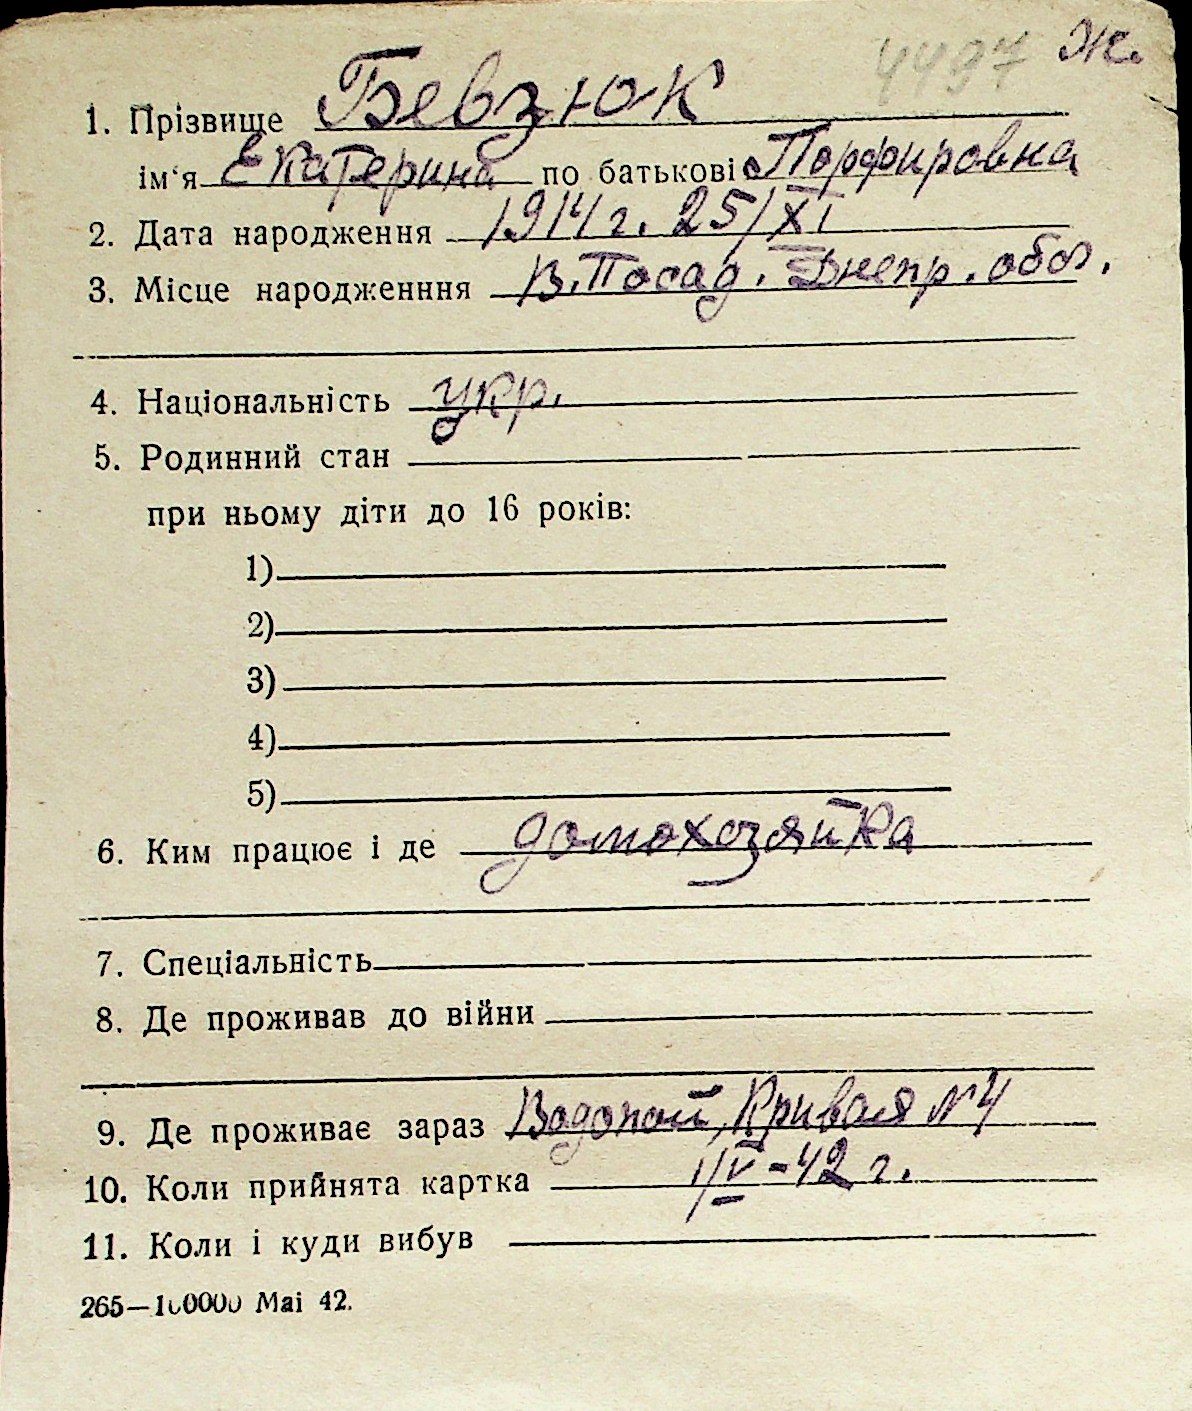 4497 Ж.
1. Прізвище Бевзюк
ім'я Екатерина по батькові Порфировна
2. Дата народження 1914 г. 25/XI
3. Місце народженння В. Посад. Днепр. обл.
4. Національність укр.
5. Родинний стан
при ньому діти до 16 років:
1)
2)
3)
4)
5)
6. Ким працює і де домохозяйка
7. Спеціальність
8. Де проживав до війни
9. Де проживає зараз Водопой, Кривая № 4
10. Коли прийнята картка 1/V-42 г.
11. Коли і куди вибув
265—100000 Mai 42.